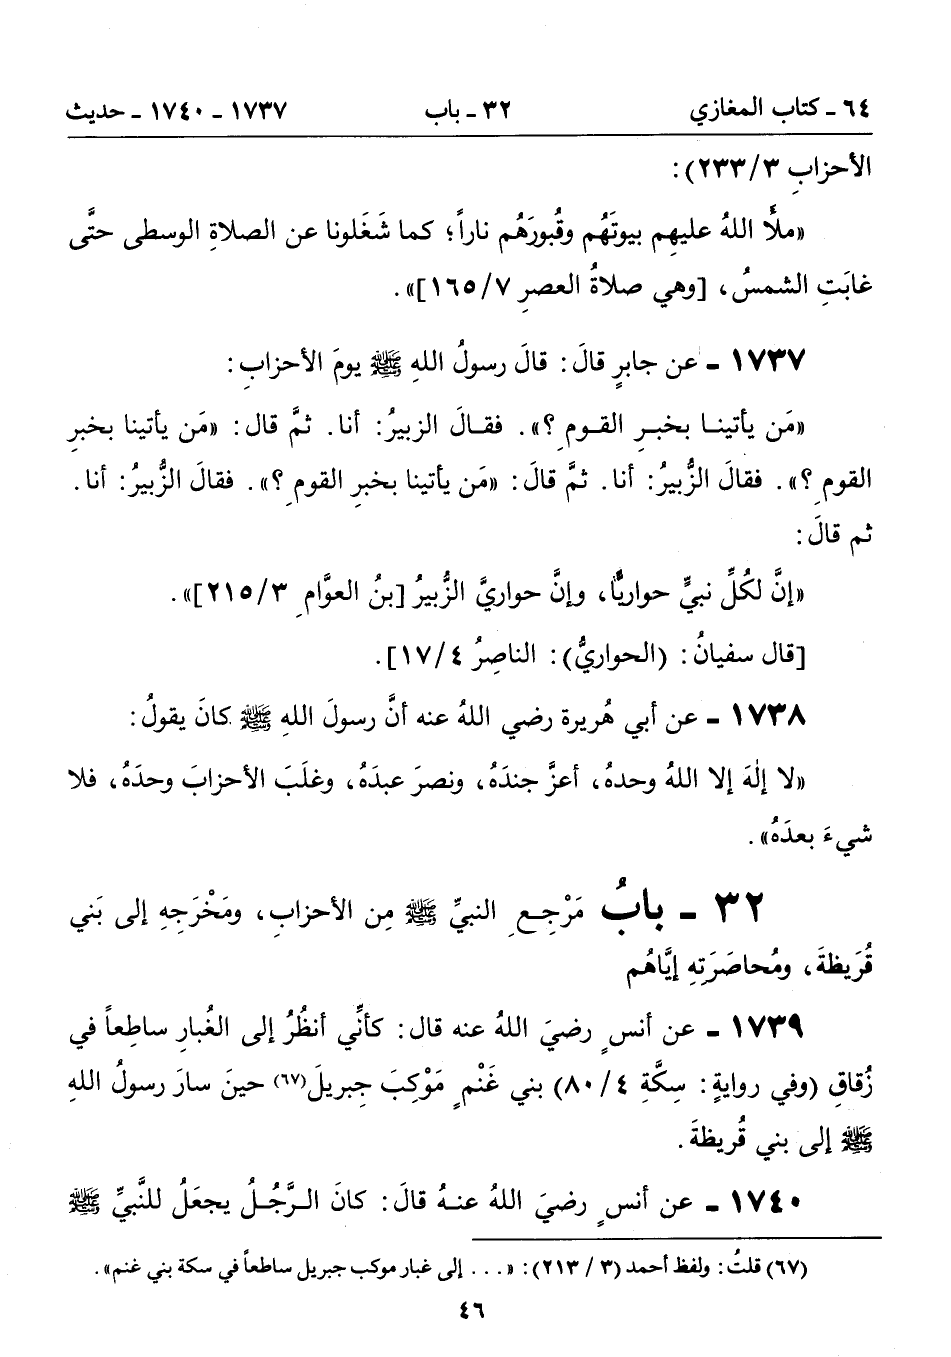 ٦٤ ـ كتاب المغازي ٣٢ ـ باب ١٧٣٧ ـ ١٧٤٠ ـ حديث
الأحزابِ ٢٣٣/٣):
«ملأَ اللهُ عليهِم بيوتَهُم وقُبورَهُم ناراً؛ كما شَغَلونا عن الصلاةِ الوسطى حتَّى
غابَتِ الشمسُ، [وهي صلاةُ العصرِ ١٦٥/٧]».
١٧٣٧ ـ عن جابرٍ قالَ: قالَ رسولُ اللهِ ﷺ يومَ الأحزابِ:
«مَن يأتينا بخبرِ القومِ؟». فقالَ الزبيرُ: أنا. ثمَّ قال: «مَن يأتينا بخبرِ
القومِ؟». فقالَ الزُّبيرُ: أنا. ثمَّ قالَ: «مَن يأتينا بخبرِ القومِ؟». فقالَ الزُّبيرُ: أنا.
ثم قالَ:
«إنَّ لكُلِّ نبيٍّ حواريًّا، وإنَّ حواريَّ الزُّبيرُ [بنُ العوَّامِ ٢١٥/٣]».
[قال سفيانُ: (الحواريُّ): الناصِرُ ١٧/٤].
١٧٣٨ ـ عن أبي هُريرة رضي اللهُ عنه أنَّ رسولَ اللهِ ﷺ كانَ يقولُ:
«لا إلٰهَ إلا اللهُ وحدهُ، أعزَّ جندَهُ، ونصرَ عبدَهُ، وغلَبَ الأحزابَ وحدَهُ، فلا
شيءَ بعدَهُ».
٣٢ ـ بابُ مَرْجِعِ النبيِّ ﷺ مِن الأحزابِ، ومَخْرَجِهِ إلى بَني
قُرَيظةَ، ومُحاصَرَتِهِ إيَّاهُم
١٧٣٩ ـ عن أنسٍ رضيَ اللهُ عنه قال: كأنِّي أنظُرُ إلى الغُبارِ ساطِعاً في
زُقاقِ (وفي روايةٍ: سِكَّةِ ٨٠/٤) بني غَنْمٍ مَوْكِبَ جِبريلَ(٦٧) حينَ سارَ رسولُ اللهِ
ﷺ إلى بني قُريظةَ.
١٧٤٠ ـ عن أنسٍ رضيَ اللهُ عنهُ قالَ: كانَ الرَّجُلُ يجعَلُ للنَّبيِّ ﷺ
(٦٧) قلتُ: ولفظ أحمد (٣ / ٢١٣): «... إلى غبار موكب جبريل ساطعاً في سكة بني غنم».
٤٦